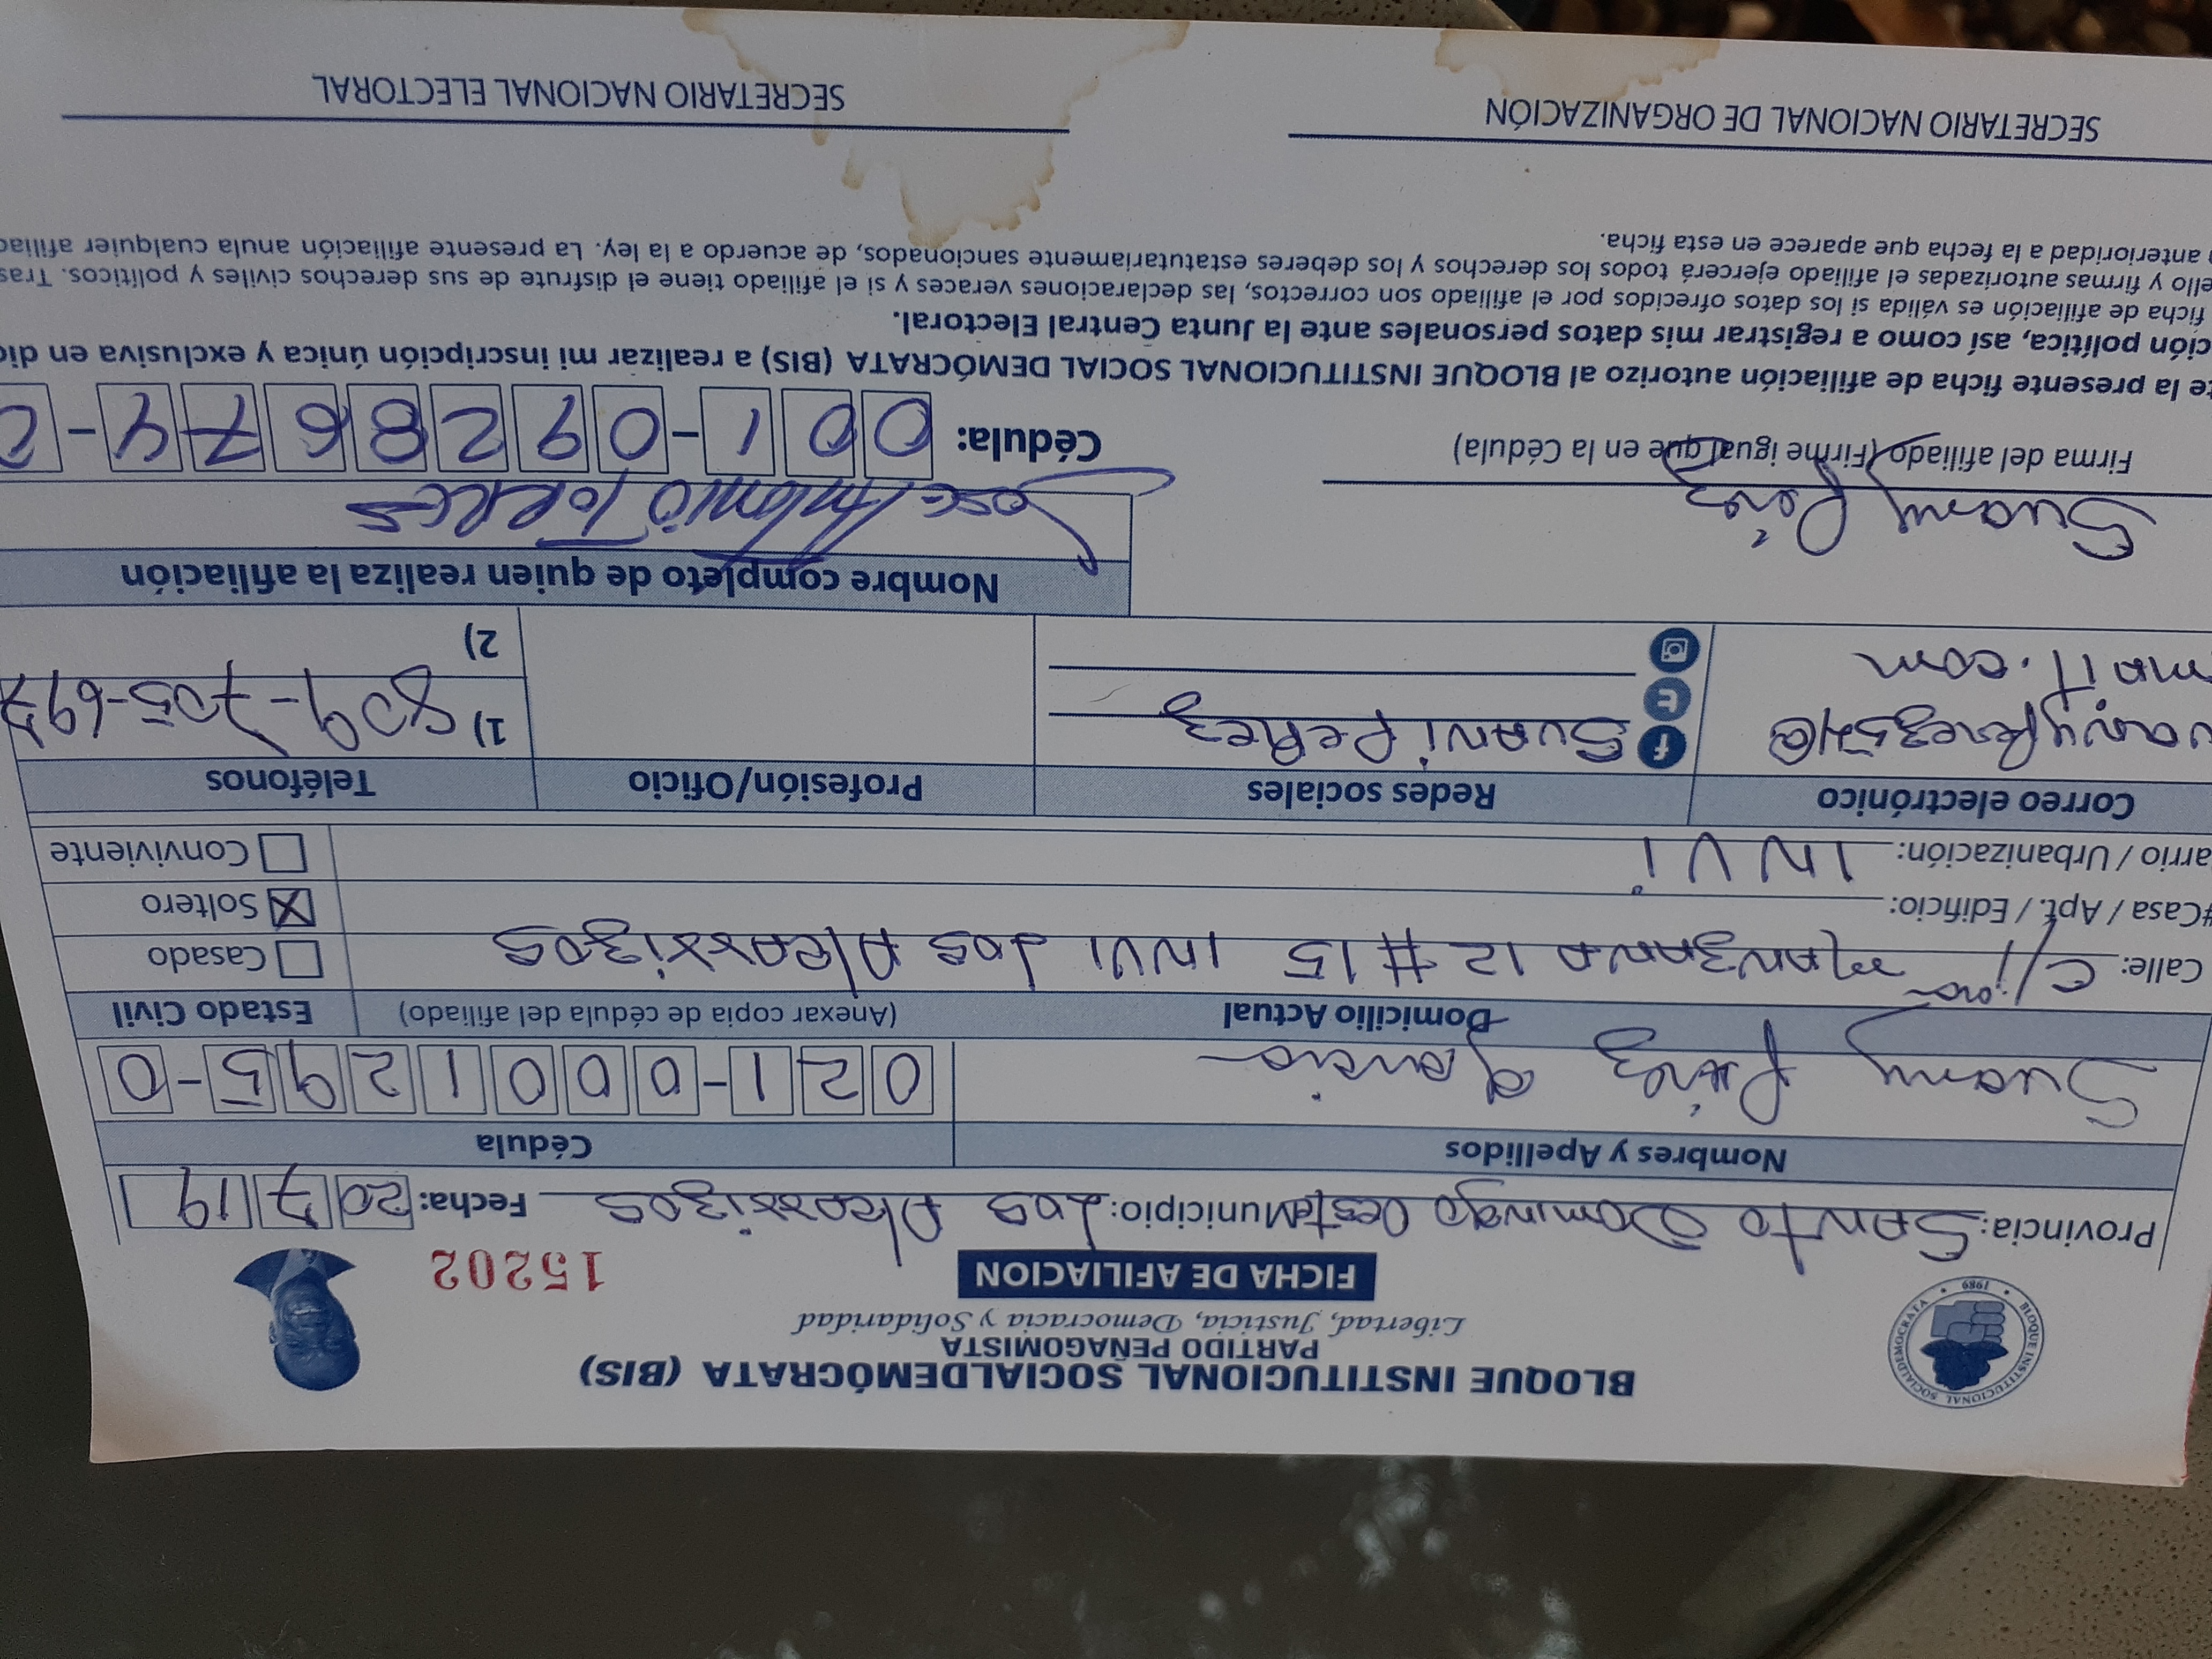 BLOQUE INSTITUCIONAL SOCIALDEMÓCRATA (BIS)
PARTIDO PEÑAGOMISTA
Libertad, Justicia, Democracia y Solidaridad
BLOQUE INSTITUCIONAL SOCIALDEMOCRATA • 1989 •
FICHA DE AFILIACION
15202
Provincia: Santo Domingo Oeste Municipio: Los Alcarrizos Fecha: 20 7 19
Nombres y Apellidos Cédula
Suany Pérez 021-0001295-0
Domicilio Actual (Anexar copia de cédula del afiliado) Estado Civil
Calle: C/ manzana 12 #15 INVI Los Alcarrizos Casado
#Casa / Apt. / Edificio: Soltero X
arrio / Urbanización: INVi Conviviente
Correo electrónico Redes sociales Profesión/Oficio Teléfonos
uanyPerez54@ f SuANi PeRez 1) 809-705-697
mail.com 2)
Nombre completo de quien realiza la afiliación
Suany Pérez Jose Antonio Torres
Firma del afiliado (Firme igual que en la Cédula) Cédula: 001-0928674-
te la presente ficha de afiliación autorizo al BLOQUE INSTITUCIONAL SOCIAL DEMÓCRATA (BIS) a realizar mi inscripción única y exclusiva en dic
ción política, así como a registrar mis datos personales ante la Junta Central Electoral.
ficha de afiliación es válida si los datos ofrecidos por el afiliado son correctos, las declaraciones veraces y si el afiliado tiene el disfrute de sus derechos civiles y políticos. Tras
ello y firmas autorizadas el afiliado ejercerá todos los derechos y los deberes estatutariamente sancionados, de acuerdo a la ley. La presente afiliación anula cualquier afiliac
anterioridad a la fecha que aparece en esta ficha.
SECRETARIO NACIONAL DE ORGANIZACIÓN SECRETARIO NACIONAL ELECTORAL